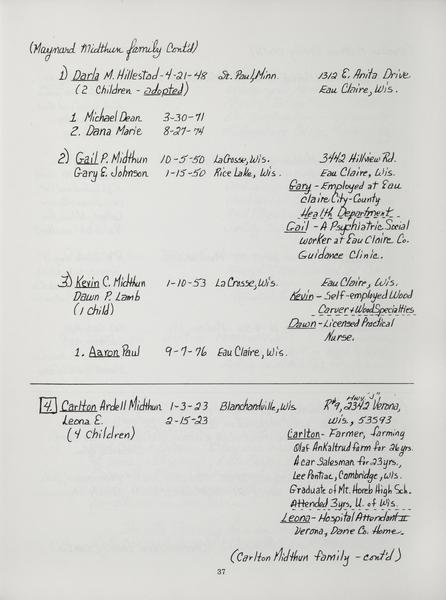 (Maynard Midthun family Cont'd)
1) Darla M. Hillestad - 4-21-48 St. Paul, Minn. 1312 E. Anita Drive
(2 Children - adopted) Eau Claire, Wis.
1 Michael Dean 3-30-71
2. Dana Marie 8-27-74
2) Gail P. Midthun 10-5-50 LaCrosse, Wis. 3442 Hillview Rd.
Gary E. Johnson 1-15-50 Rice Lake, Wis. Eau Claire, Wis.
Gary - Employed at Eau
Claire City-County
Health Department
Gail - A Psychiatric Social
worker at Eau Claire Co.
Guidance Clinic.
3) Kevin C. Midthun 1-10-53 LaCrosse, Wis. Eau Claire, Wis.
Dawn P. Lamb Kevin - Self-employed Wood
(1 child) Carver & Wood Specialties
Dawn - Licensed Practical
Nurse.
1. Aaron Paul 9-7-76 Eau Claire, Wis.
4. Carlton Ardell Midthun 1-3-23 Blanchardville, Wis R#9, 2342 Hwy. "J" Verona,
Leona E. 2-15-23 Wis., 53593
(4 Children) Carlton - Farmer, farming
Olaf Ankaltrud farm for 26 yrs.
A car Salesman for 23 yrs.,
Lee Pontiac, Cambridge, Wis.
Graduate of Mt. Horeb High Sch.
Attended 3 yrs. U. of Wis.
Leona - Hospital Attendant II
Verona, Dane Co. Home.
(Carlton Midthun family - cont'd)
37